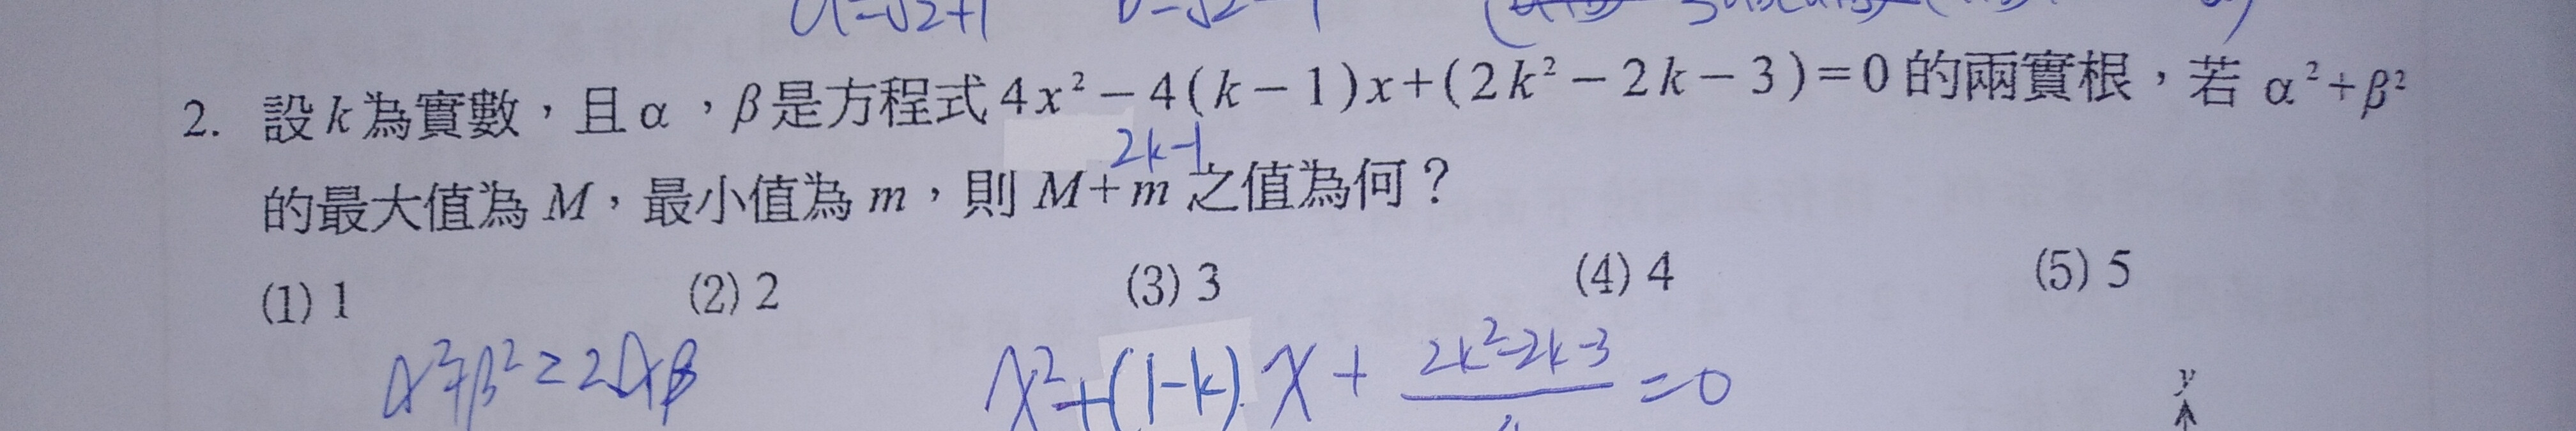 a=√2+1
2. 設 k 為實數，且 α，β 是方程式 4x²－4(k－1)x+(2k²－2k－3)=0 的兩實根，若 α²+β²
2k-1
的最大值為 M，最小值為 m，則 M+m 之值為何？
(1) 1 (2) 2 (3) 3 (4) 4 (5) 5
α²+β²≥2αβ x²+(1-k)x+ 2k²-2k-3 =0
y